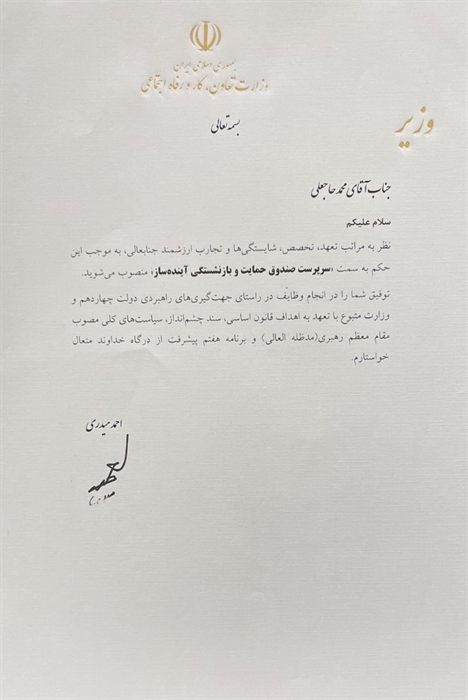 جمهوری اسلامی ایران
وزارت تعاون، کار و رفاه اجتماعی
وزیر
بسمه تعالی
جناب آقای محمد حاجعلی
سلام علیکم
نظر به مراتب تعهد، تخصص، شایستگی‌ها و تجارب ارزشمند جنابعالی، به موجب این
حکم به سمت «سرپرست صندوق حمایت و بازنشستگی آینده‌ساز» منصوب می‌شوید.
توفیق شما را در انجام وظایف در راستای جهت‌گیری‌های راهبردی دولت چهاردهم و
وزارت متبوع با تعهد به اهداف قانون اساسی، سند چشم‌انداز، سیاست‌های کلی مصوب
مقام معظم رهبری(مدظله العالی) و برنامه هفتم پیشرفت از درگاه خداوند متعال
خواستارم.
احمد میدری